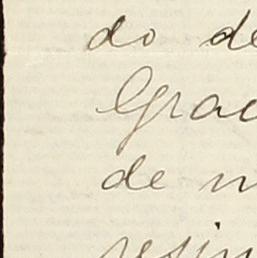 do de
Grac
de n
resin